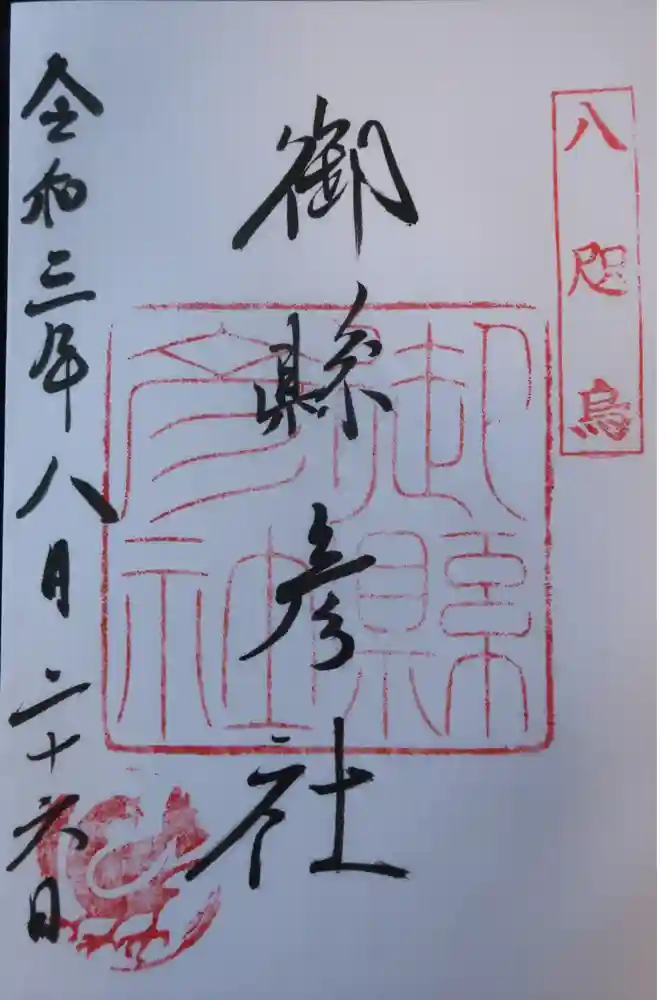 八咫烏
御縣彦社
御縣彦社
令和三年八月二十六日